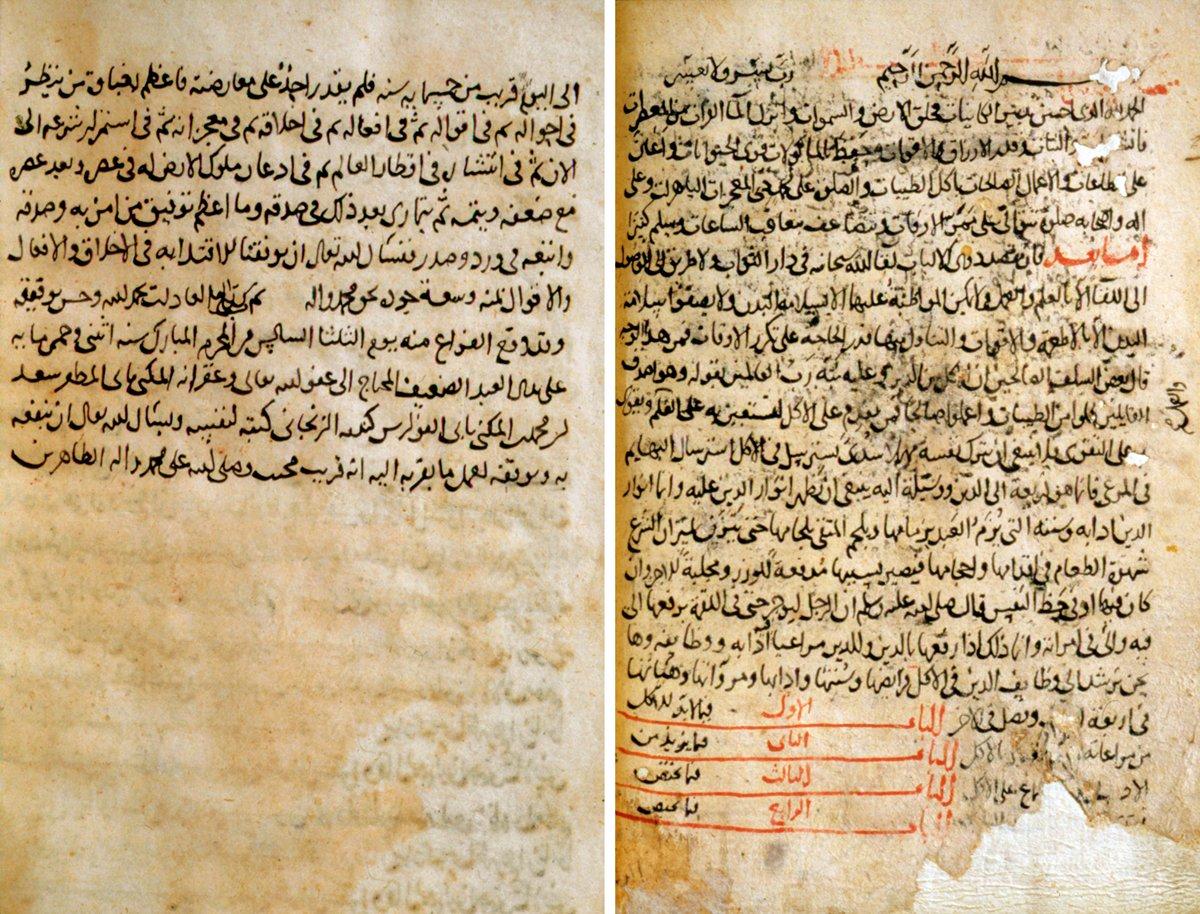 بسم الله الرحمن الرحيم رب يسر ولا تعسر
الحمد لله الذي احسن تدبير الكاينات فخلق الارض والسموات وانزل الماء الفرات من المعصرات
وقدر الارزاق والاقوات وحفظ بالماكولات قوى الحيوانات واعان
على الطاعات والاعمال الصالحات باكل الطيبات والصلوة على محمد ذي المعجزات الباهرات وعلى
اله واصحابه صلوة تتوالى على ممر الاوقات وتتضاعف بتعاقب الساعات وسلم كثيرا
اما بعد فان مقصد ذوي الالباب لقاء الله سبحانه في دار الثواب ولا طريق الى الوصول
الى اللقاء الا بالعلم والعمل ولا يمكن المواظبة عليهما الا بسلامة البدن ولا يصفوا سلامة
البدن الا بالاطعمة والاقوات والتناول منها قدر الحاجة على تكرر الاوقات فمن هذا الوجه
قال بعض السلف الصالحين ان الاكل من الدين وعليه نبه رب العالمين بقوله وهو اصدق
القايلين كلوا من الطيبات واعملوا صالحا فمن يقدم على الاكل ليستعين به على العلم والعمل ويقوى
به على التقوى فلا ينبغي ان يترك نفسه مهملا سدى يسترسل في الاكل استرسال البهايم
في المرعى فانما هو ذريعة الى الدين ووسيلة اليه ينبغي ان تظهر انوار الدين عليه وانما انوار
الدين ادابه وسننه التي يزم العبد بزمامها ويلجم المتقي بلجامها حتى يتزن بميزان الشرع
شهوة الطعام في اقدامها واحجامها فيصير بسببها مدفعة للوزر ومجلبة للاجر وان
كان فيها اوفى حظ النفس قال صلى الله عليه وسلم ان الرجل ليوجر حتى في اللقمة يرفعها الى
فيه والى في امراته وانما ذلك اذا رفعها بالدين وللدين مراعيا آدابه ووظايفه وها
نحن نرشد الى وظايف الدين في الاكل فرايضها وسننها وادابها ومرواتها وهيئاتها
في اربعة ابواب وفصل في اخرها الباب الاول فيما لا بد للاكل
من مراعاته الباب الثاني فيما يزيد من
الاداب الاجتماع على الاكل الباب الثالث فيما يخص
الباب الرابع فيما يخص
الى اليوم قريب من خمسماية سنة فلم يقدر احد على معارضته فاعظم بغباوة من ينظر
في احواله ثم في اقواله ثم في افعاله ثم في اخلاقه ثم في معجزاته ثم في استمرار شرعه الى
الان ثم في انتشاره في اقطار العالم ثم في اذعان ملوك الارض له في عصره وبعد عصره
مع ضعفه ويتمه ثم يتمارى بعد ذلك في صدقه وما اعظم توفيق من امن به وصدقه
واتبعه في ورد وصدر فنسال الله تعالى ان يوفقنا للاقتداء به في الاخلاق والافعال
والاقوال بمنه وسعة جوده بحق محمد واله تم كتاب العادات بحمد الله وحسن توفيقه
وقد وقع الفراغ منه يوم الثلثا السادس من المحرم المبارك سنة اثنى وخمس ماية
على يدي العبد الضعيف المحتاج الى عفو الله تعالى وغفرانه المكنى بابي المطهر سعد
بن محمد المكنى بابي الفوارس الزنجاني كتبه لنفسه ونسال الله تعالى ان ينفعه
به ويوفقه لعمل ما يقربه اليه انه قريب مجيب وصلى الله على محمد واله الطاهرين